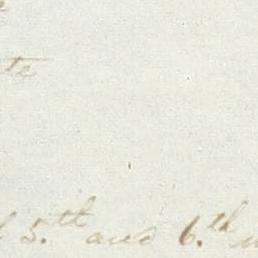 te
5.th and 6.th